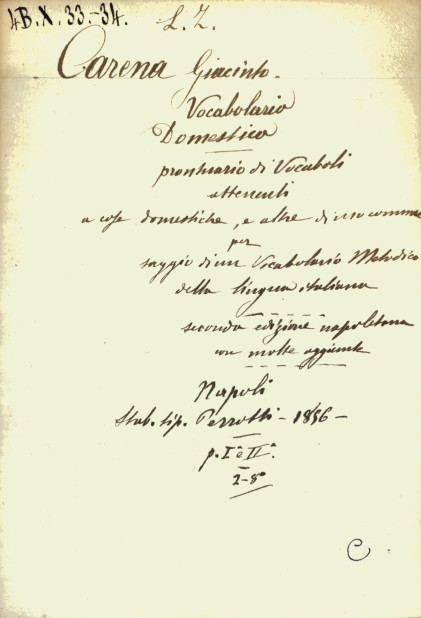 4B.X.33.-34. L. Z.
Carena Giacinto.
Vocabolario
Domestico
prontuario di Vocaboli
attenenti
a cose domestiche, e altre di uso comune
per
saggio di un Vocabolario Metodico
della lingua italiana
seconda edizione napoletana
con molte aggiunte
Napoli
Stab. tip. Perrotti - 1856 -
p. Iª e IIª.
2-8º
C